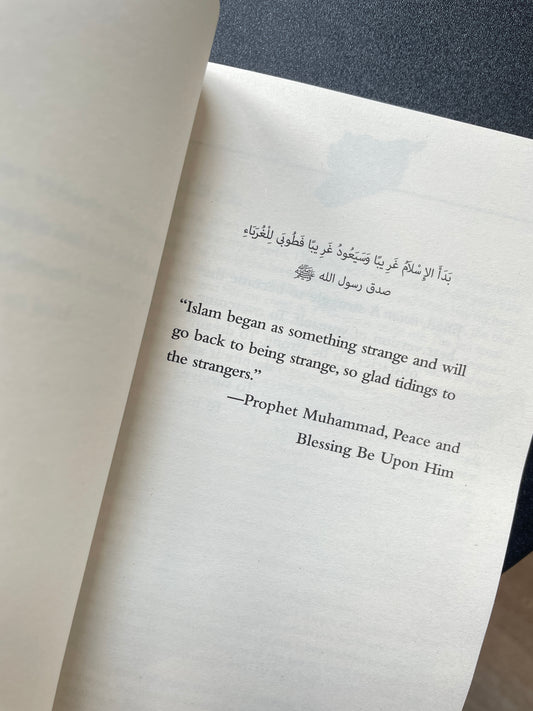 بَدَأَ الإِسْلَامُ غَرِيبًا وَسَيَعُودُ غَرِيبًا فَطُوبَى لِلْغُرَبَاءِ
صدق رسول الله ﷺ
“Islam began as something strange and will
go back to being strange, so glad tidings to
the strangers.”
—Prophet Muhammad, Peace and
Blessing Be Upon Him